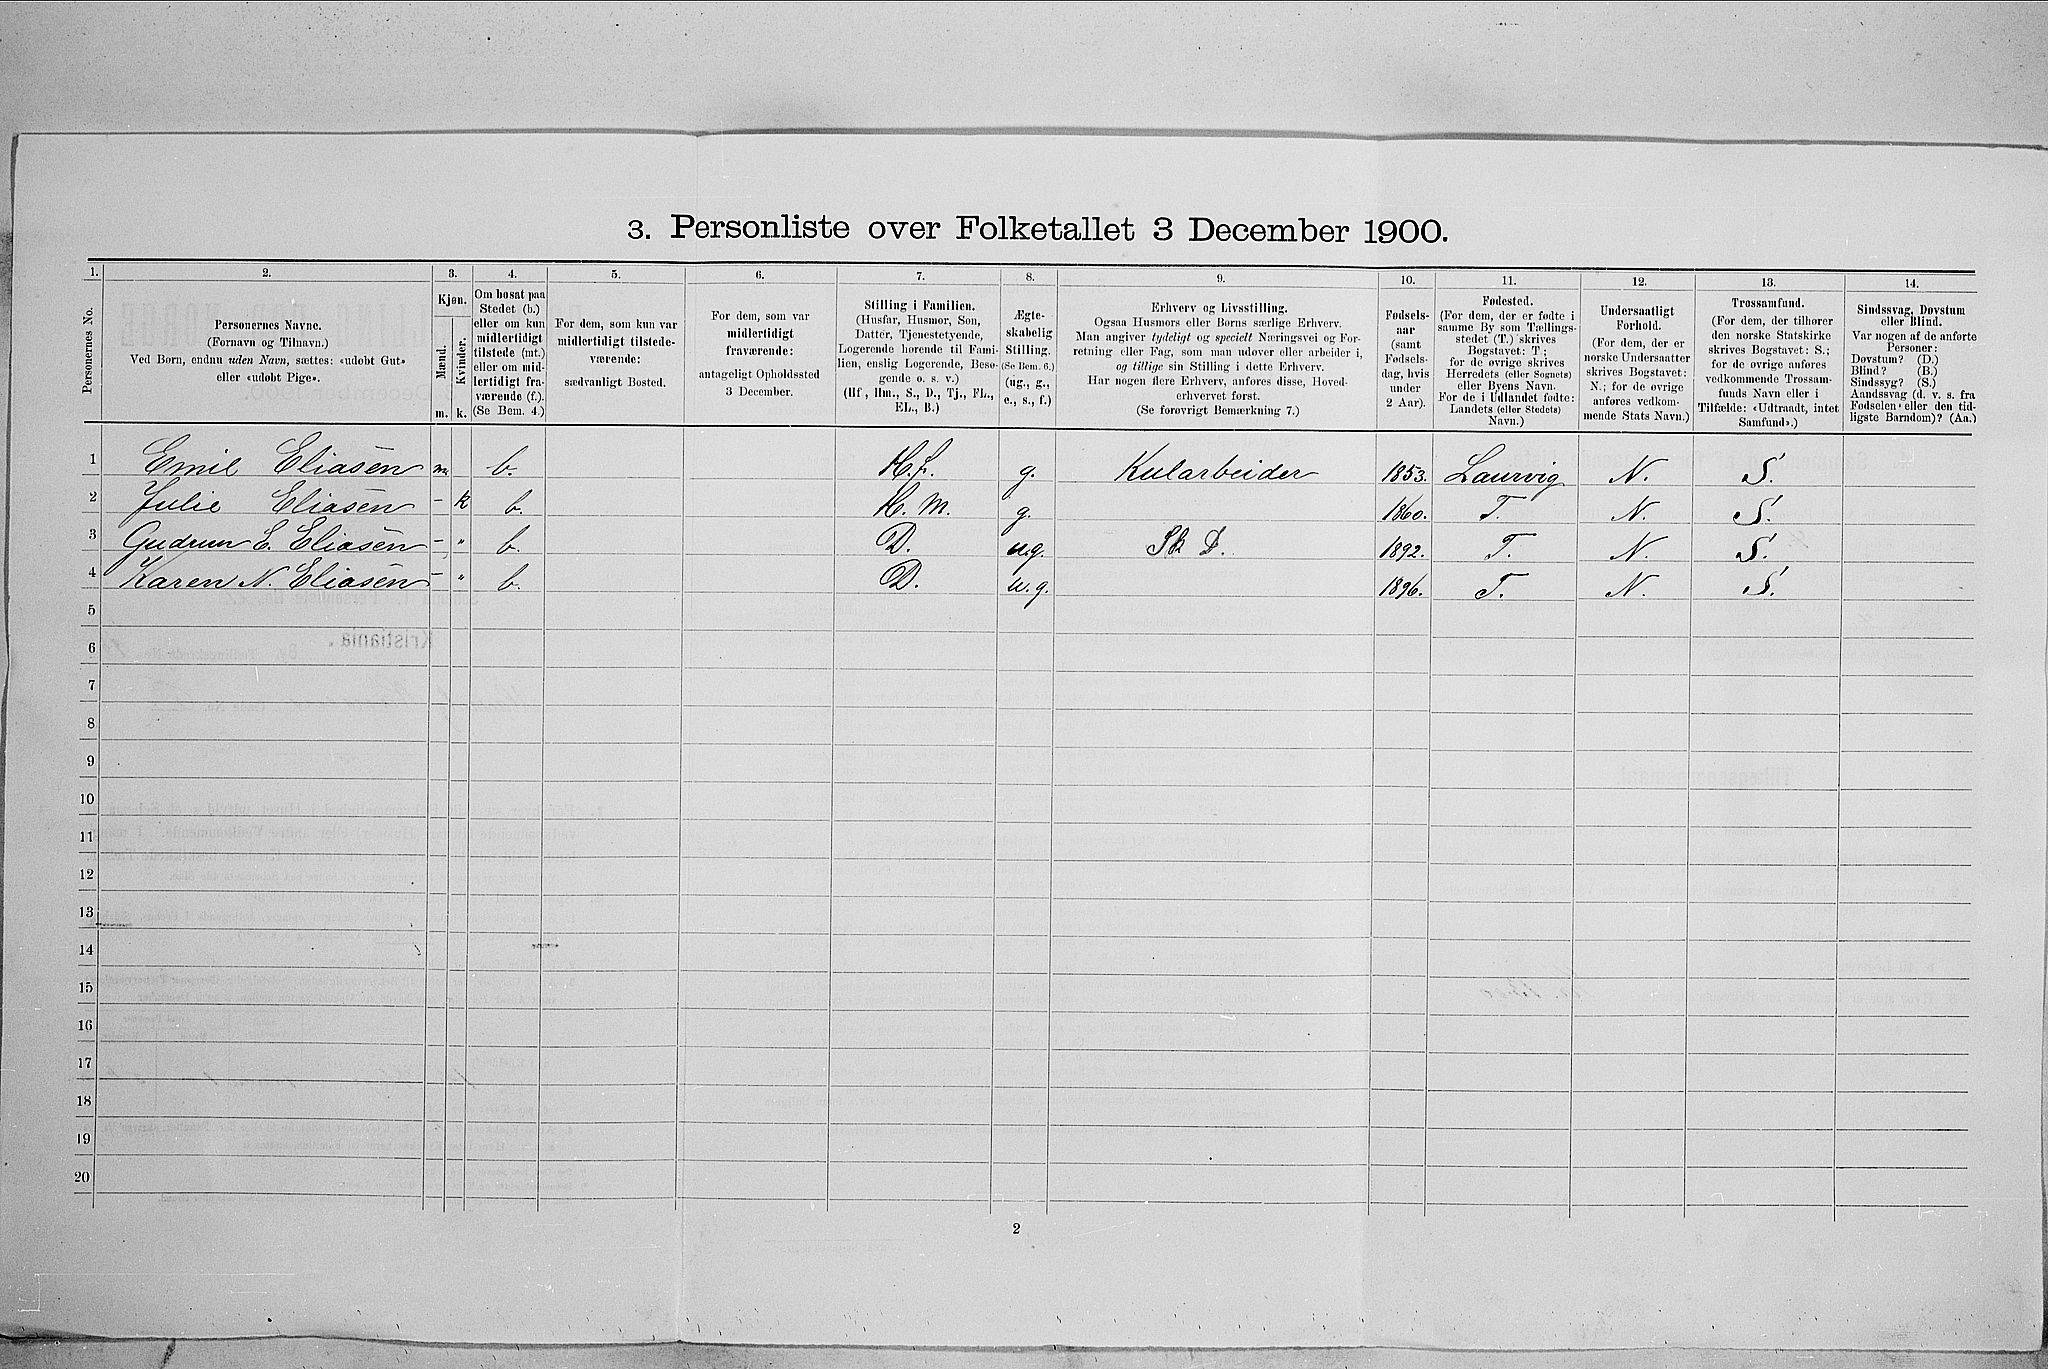 3. Personliste over Folketallet 3 December 1900.
1. 2. 3. 4. 5. 6. 7. 8. 9. 10. 11. 12. 13. 14.
Personernes No.
Personernes Navne.
(Fornavn og Tilnavn.)
Ved Børn, endnu uden Navn, sættes: «udøbt Gut»
eller «udøbt Pige».
Kjøn.
Mænd.
Kvinder.
m. k.
Om bosat paa
Stedet (b.)
eller om kun
midlertidigt
tilstede (mt.)
eller om mid-
lertidigt fra-
værende (f.).
(Se Bem. 4.)
For dem, som kun var
midlertidigt tilstede-
værende:
sædvanligt Bosted.
For dem, som var
midlertidigt
fraværende:
antageligt Opholdssted
3 December.
Stilling i Familien.
(Husfar, Husmor, Søn,
Datter, Tjenestetyende,
Logerende hørende til Fami-
lien, enslig Logerende, Besø-
gende o. s. v.)
(Hf, Hm., S., D., Tj., FL.,
EL., B.)
Ægte-
skabelig
Stilling.
(Se Bem. 6.)
(ug., g.,
e., s., f.)
Erhverv og Livsstilling.
Ogsaa Husmors eller Børns særlige Erhverv.
Man angiver tydeligt og specielt Næringsvei og For-
retning eller Fag, som man udøver eller arbeider i,
og tillige sin Stilling i dette Erhverv.
Har nogen flere Erhverv, anføres disse, Hoved-
erhvervet først.
(Se forøvrigt Bemærkning 7.)
Fødsels-
aar
(samt
Fødsels-
dag, hvis
under
2 Aar).
Fødested.
(For dem, der er fødte i
samme By som Tællings-
stedet (T.) skrives
Bogstavet: T;
for de øvrige skrives
Herredets (eller Sognets)
eller Byens Navn.
For de i Udlandet fødte:
Landets (eller Stedets)
Navn.)
Undersaatligt
Forhold.
(For dem, der er
norske Undersaatter
skrives Bogstavet:
N.; for de øvrige
anføres vedkom-
mende Stats Navn.)
Trossamfund.
(For dem, der tilhører
den norske Statskirke
skrives Bogstavet: S.;
for de øvrige anføres
vedkommende Trossam-
funds Navn eller i
Tilfælde: «Udtraadt, intet
Samfund».)
Sindssvag, Døvstum
eller Blind.
Var nogen af de anførte
Personer:
Døvstum? (D.)
Blind? (B.)
Sindssyg? (S.)
Aandssvag (d. v. s. fra
Fødselen eller den tid-
ligste Barndom)? (Aa.)
1 Emil Eliasen m. b. H.f. g. Kularbeider 1853. Laurvig N. S.
2 Julie Eliasen – k b. H.m. g. 1860. T. N. S.
3 Gudrun E. Eliasen – " b. D. u.g. Sk D. 1892. T. N. S.
4 Karen N. Eliasen – " b. D. u.g. 1896. T. N. S.
5
6
7
8
9
10
11
12
13
14
15
16
17
18
19
20
2